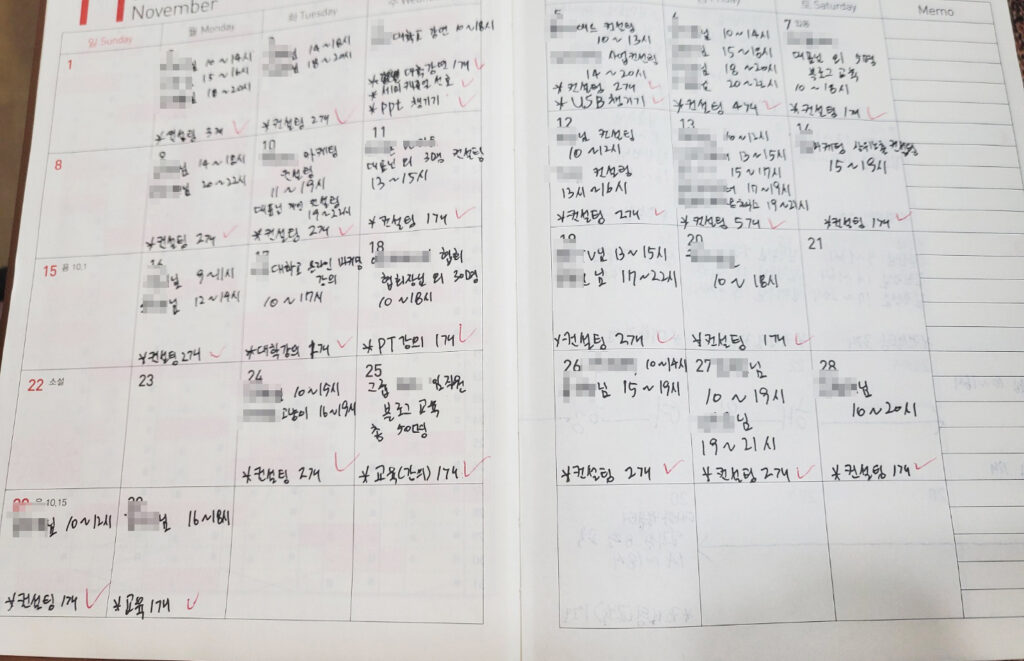 11
November
일 Sunday
월 Monday
화 Tuesday
토 Saturday
Memo
1
10~14시
15~16시
18~20시
*컨설팅 3개
14~18시
님 18~20시
*컨설팅 2개
대학교 강연 10~18시
대학강연 1개
*ppt 챙기기
5
컨설팅
10~13시
사업컨설팅
14~20시
*컨설팅 2개
*USB챙기기
6
님 10~14시
15~18시
18~20시
20~22시
*컨설팅 4개
7
대표님 외 5명
블로그 교육
10~18시
*컨설팅 1개
8
님 14~18시
님 20~22시
*컨설팅 2개
10
마케팅
컨설팅
11~19시
대표님 개인 컨설팅
19~22시
*컨설팅 2개
11
대표님 외 3명 컨설팅
13~15시
*컨설팅 1개
12
님 컨설팅
10~12시
컨설팅
13시~16시
*컨설팅 2개
13
10~12시
13~15시
15~17시
17~19시
19~21시
*컨설팅 5개
14
마케팅 컨설팅
15~19시
*컨설팅 1개
15 음 10.1
16
님 9~11시
님 12~19시
*컨설팅 2개
17
대학교 온라인 마케팅
강의
10~17시
*대학강의 1개
18
협회
협회장님 외 30명
10~18시
*PT강의 1개
19
13~15시
님 17~22시
*컨설팅 2개
20
10~18시
*컨설팅 1개
21
22 소설
23
24
10~19시
고냥이 16~19시
*컨설팅 2개
25
그룹 임직원
블로그 교육
총 50명
*교육(강의) 1개
26
10~14시
님 15~19시
*컨설팅 2개
27
님
10~19시
님
19~21시
*컨설팅 2개
28
님
10~20시
*컨설팅 1개
29 음 10.15
님 10~12시
*컨설팅 1개
30
님 16~18시
*교육 1개